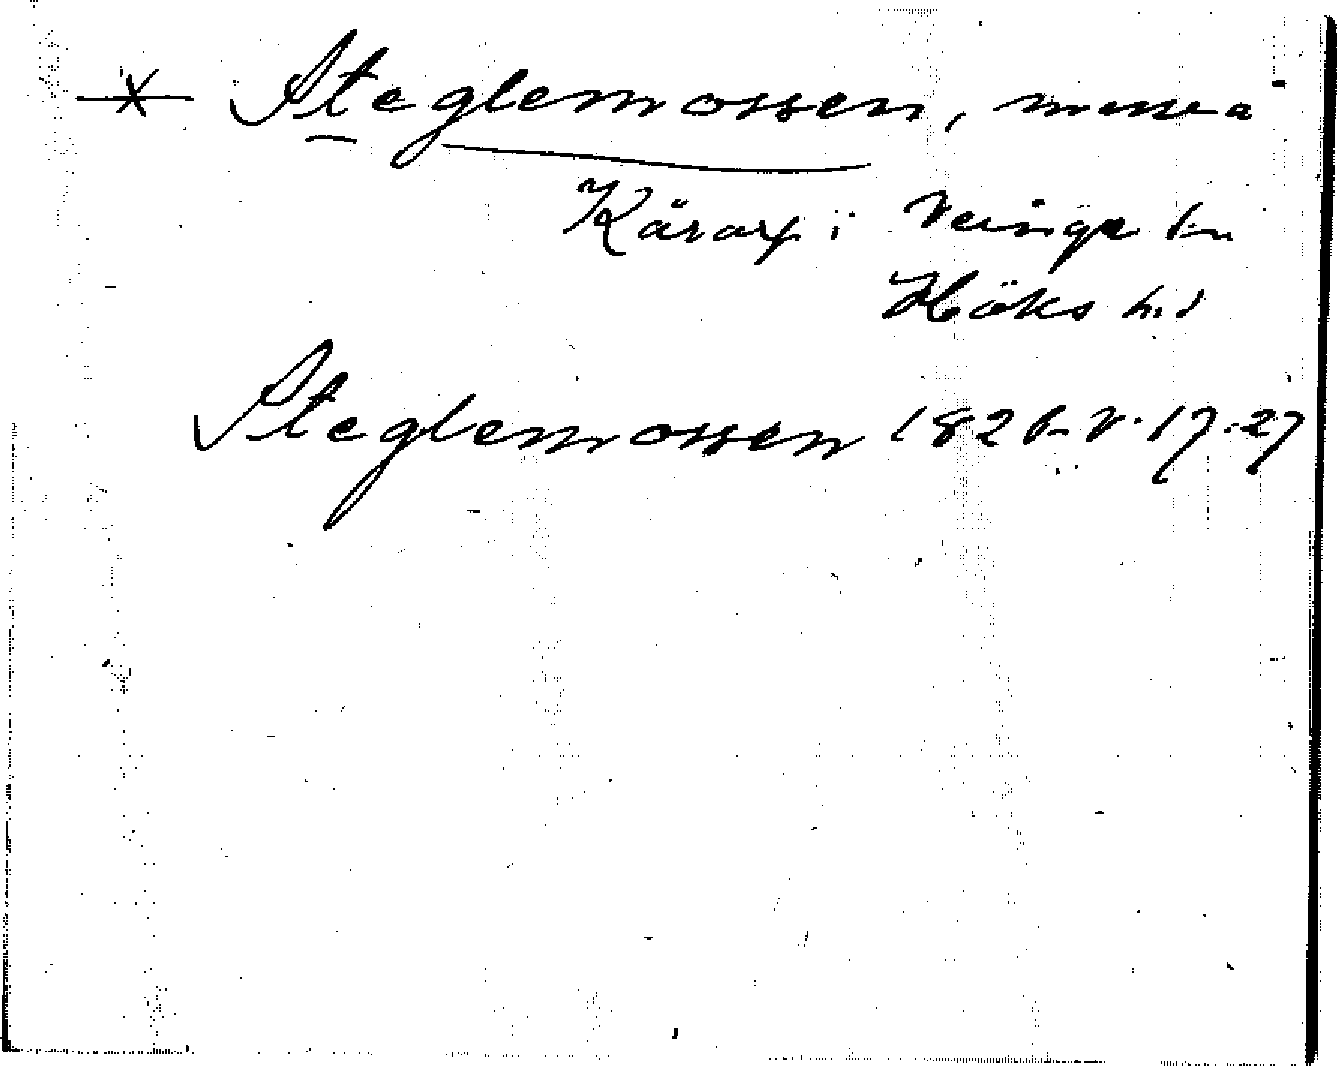 Steglemossen, mosse å
Kårarp i Veinge sn
Höks hd
Steglemossen 1826 V. 17.27